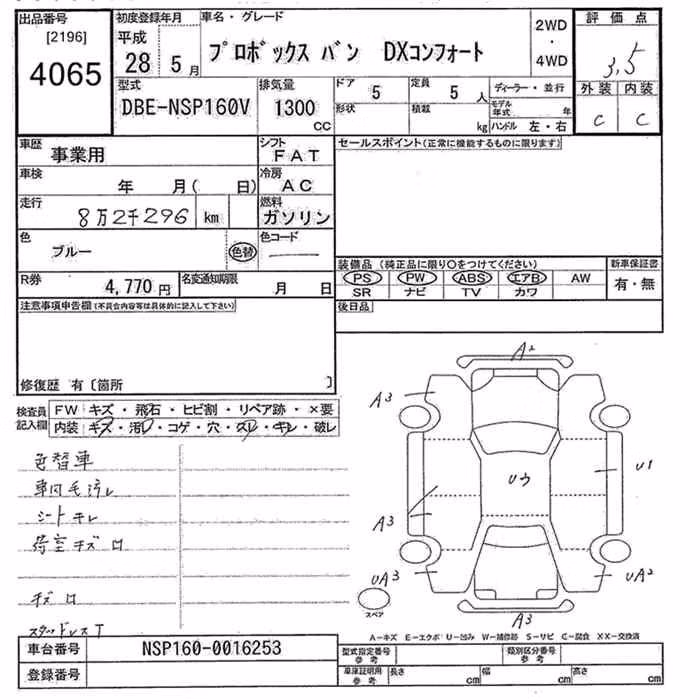 出品番号
[2196]
4065
初度登録年月
平成
28 5月
車名・グレード
プロボックス バン DXコンフォート
2WD
・
4WD
評価点
3,5
外装 内装
C C
型式
DBE-NSP160V
排気量
1300
CC
ドア 5
定員 5 人
形状
積載 kg
ディーラー・並行
モデル年式 年
ハンドル 左・右
車歴 事業用
シフト FAT
車検 年 月( 日)
冷房 AC
走行 8万2千296 km
燃料 ガソリン
色 ブルー 色替
色コード
R券 4,770円
名変通知期限 月 日
セールスポイント(正常に機能するものに限ります)
装備品(純正品に限り○をつけてください)
PS PW ABS エアB AW
SR ナビ TV カワ
新車保証書
有・無
後日品
注意事項申告欄(不具合内容等は具体的に記入して下さい)
修復歴 有〔箇所 〕
検査員記入欄
FW キズ・飛石・ヒビ割・リペア跡・×要
内装 キズ・汚レ・コゲ・穴・スレ・キレ・破レ
色替車
車内毛汚レ
シートキレ
荷室キズロ
キズロ
スタッドレスT
A2
A3
U1
Uウ
A3
UA3
UA2
A3
スペア
A−キズ E−エクボ U−凹み W−補修跡 S−サビ C−腐食 XX−交換済
車台番号 NSP160-0016253
登録番号
型式指定番号 参考
類別区分番号 参考
車庫証明用 参考
長さ cm
幅 cm
高さ cm